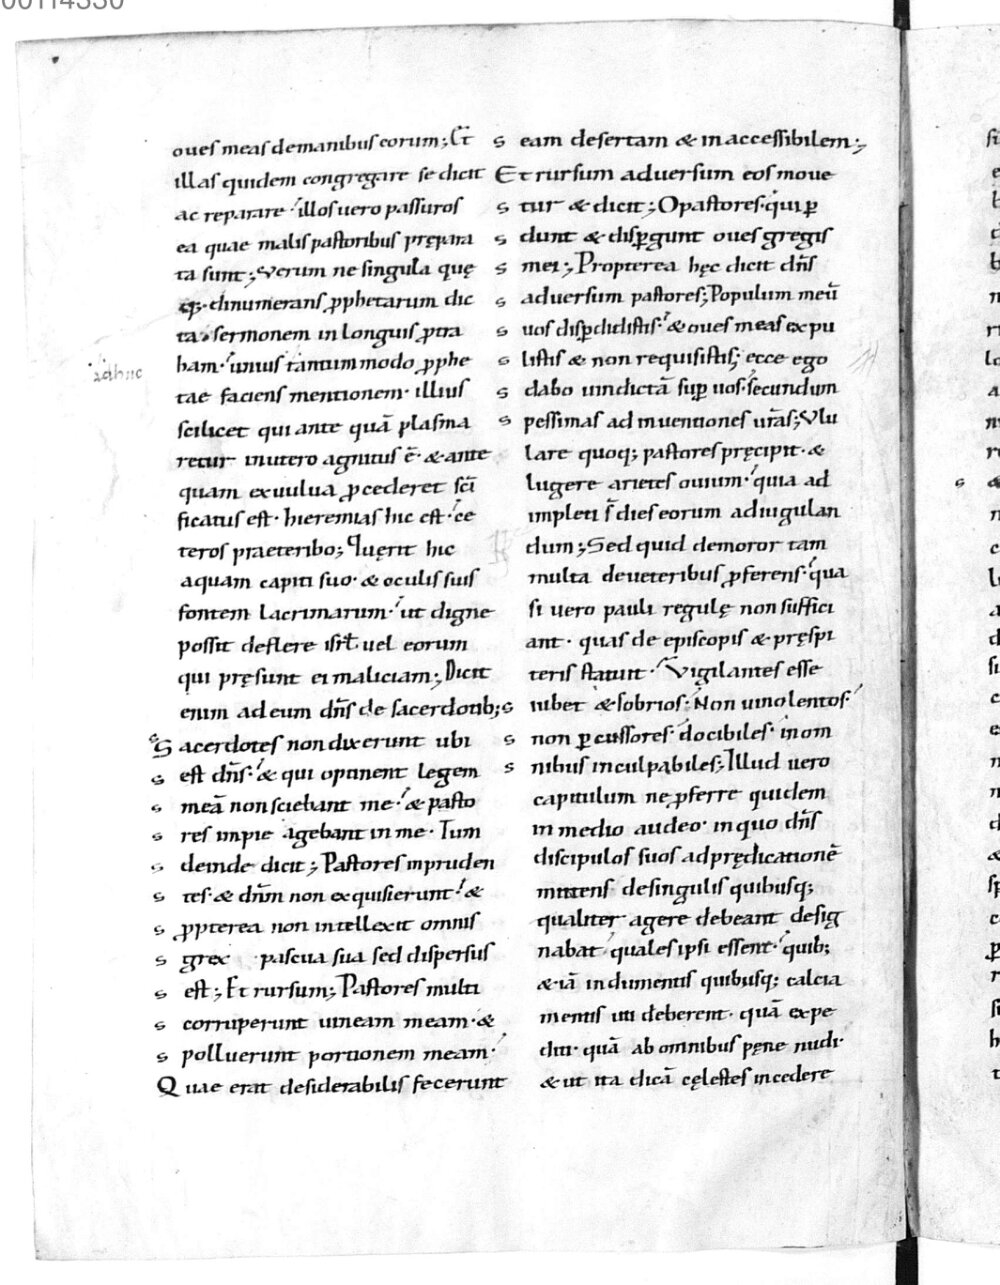 00114330
oueſ meaſ de manibuſ eorum; Et̄
illaſ quidem congregare ſe dicit
ac reparare· illoſ uero paſſuroſ
ea quae maliſ paſtoribuſ prępara
ta ſunt; Verum ne ſingula quę
q;· dinumeranſ ꝓphetarum dic
ta· ſermonem in longuiſ ꝓtra
ham· uniuſ tantum modo ꝓphe
adhuc
tae facienſ mentionem· illiuſ
ſcilicet qui ante quā plaſma
retur in utero agnituſ ē· & ante
quam ex uulua ꝓcederet ſc̄i
ficatuſ eſt· hieremiaſ hic eſt· ce
teroſ praeteribo; Quęrit hic
aquam capiti ſuo· & oculiſ ſuiſ
fontem lacrimarum· ut digne
poſſit deflere iſrł uel eorum
qui pręſunt ei maliciam; Dicit
enim ad eum dn̄ſ de ſacerdotib;
Sacerdoteſ non dixerunt ubi
s eſt dn̄ſ· & qui optinent legem
s meā non ſciebant me· & paſto
s reſ impie agebant in me· Tum
s deinde dicit; Paſtoreſ impruden
s teſ· & dn̄m non exquiſierunt· &
s ꝓpterea non intellexit omniſ
s grex paſcua ſua ſed diſperſuſ
s eſt; Et rurſum; Paſtoreſ multi
s corruperunt uineam meam· &
s polluerunt portionem meam·
Quae erat deſiderabiliſ fecerunt
s eam deſertam & inacceſſibilem;
Et rurſum aduerſum eoſ moue
s tur & dicit; O paſtoreſ· qui ꝑ
s dunt & diſꝑgunt oueſ gregiſ
s mei; Propterea hęc dicit dn̄ſ
s aduerſum paſtoreſ; Populum meū
s uoſ diſꝑdidiſtiſ· & oueſ meaſ expu
s liſtiſ & non requiſiſtiſ; ecce ego
s dabo uindictā ſuꝑ uoſ· ſecundum
s peſſimaſ adinuentioneſ ur̄aſ; Vlu
lare quoq; paſtoreſ pręcipit· &
lugere arieteſ ouium· quia ad
impleti ſ̄ dieſ eorum ad iugulan
dum; Sed quid demoror tam
multa de ueteribuſ ꝓferenſ· qua
ſi uero pauli regulę non ſuffici
ant· quaſ de epiſcopiſ & pręſpi
teriſ ſtatuit· Vigilanteſ eſſe
s iubet & ſobrioſ· Non uinolentoſ·
s non ꝑcuſſoreſ· docibileſ· in om
s nibuſ inculpabileſ; Illud uero
capitulum ne ꝓferre quidem
in medio audeo· in quo dn̄ſ
diſcipuloſ ſuoſ ad prędicationē
mittenſ de ſinguliſ quibuſq;
qualiter agere debeant deſig
nabat qualeſ ipſi eſſent· quib;
& iā indumentiſ quibuſq; calcia
mentiſ uti deberent· quā expe
diti· quā ab omnibuſ pęne nudi·
& ut ita dicā cęleſteſ incedere